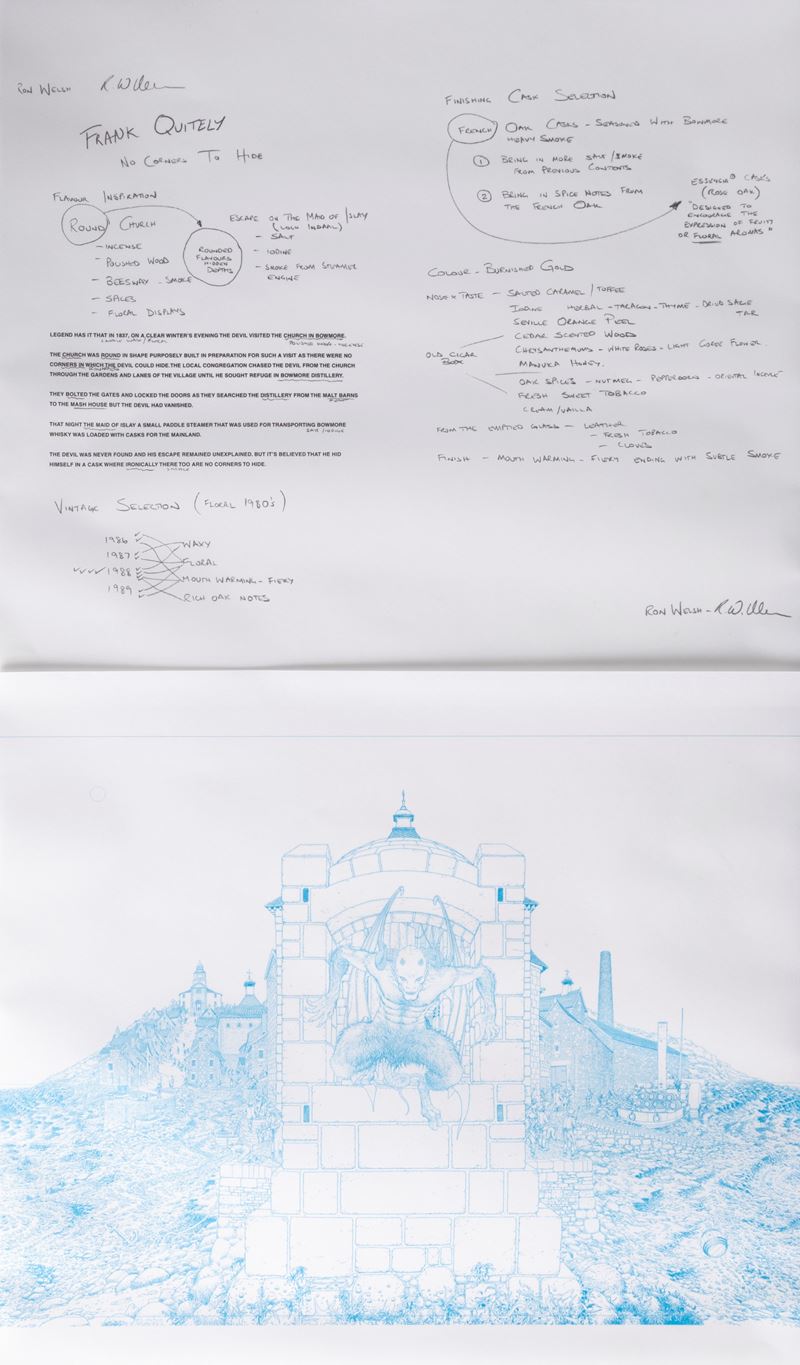 RON WELSH
FRANK QUITELY
NO CORNERS TO HIDE
FLAVOUR INSPIRATION
ROUND CHURCH
- INCENSE
- POLISHED WOOD
- BEESWAX - SMOKE
- SPICES
- FLORAL DISPLAYS
ROUNDED
FLAVOURS
HIDDEN
DEPTHS
ESCAPE ON THE MAID OF ISLAY
(LOCH INDAAL)
- SALT
- IODINE
- SMOKE FROM STEAMER
ENGINE
LEGEND HAS IT THAT IN 1837, ON A CLEAR WINTER'S EVENING THE DEVIL VISITED THE CHURCH IN BOWMORE.
POLISHED WOOD - INCENSE
THE CHURCH WAS ROUND IN SHAPE PURPOSELY BUILT IN PREPARATION FOR SUCH A VISIT AS THERE WERE NO
CORNERS IN WHICH THE DEVIL COULD HIDE.THE LOCAL CONGREGATION CHASED THE DEVIL FROM THE CHURCH
THROUGH THE GARDENS AND LANES OF THE VILLAGE UNTIL HE SOUGHT REFUGE IN BOWMORE DISTILLERY.
THEY BOLTED THE GATES AND LOCKED THE DOORS AS THEY SEARCHED THE DISTILLERY FROM THE MALT BARNS
TO THE MASH HOUSE BUT THE DEVIL HAD VANISHED.
THAT NIGHT THE MAID OF ISLAY A SMALL PADDLE STEAMER THAT WAS USED FOR TRANSPORTING BOWMORE
SALT / IODINE
WHISKY WAS LOADED WITH CASKS FOR THE MAINLAND.
THE DEVIL WAS NEVER FOUND AND HIS ESCAPE REMAINED UNEXPLAINED. BUT IT'S BELIEVED THAT HE HID
HIMSELF IN A CASK WHERE IRONICALLY THERE TOO ARE NO CORNERS TO HIDE.
VINTAGE SELECTION (FLORAL 1980's)
1986
1987
1988
1989
WAXY
FLORAL
MOUTH WARMING - FIERY
RICH OAK NOTES
FINISHING CASK SELECTION
FRENCH OAK CASKS - SEASONED WITH BOWMORE
HEAVY SMOKE
1 BRING IN MORE SALT / SMOKE
FROM PREVIOUS CONTENTS
2 BRING IN SPICE NOTES FROM
THE FRENCH OAK
ESSENCIA® CASKS
(ROSE OAK)
"DESIGNED TO
ENCOURAGE THE
EXPRESSION OF FRUITY
OR FLORAL AROMAS"
COLOUR - BURNISHED GOLD
NOSE + TASTE - SALTED CARAMEL / TOFFEE
IODINE HERBAL - TARAGON - THYME - DRIED SAGE
TAR
SEVILLE ORANGE PEEL
CEDAR SCENTED WOODS
OLD CIGAR
BOX
CHRYSANTHEMUMS - WHITE ROSES - LIGHT GORSE FLOWER.
MANUKA HONEY.
OAK SPICES - NUTMEG - PEPPERCORNS - ORIENTAL INCENSE
FRESH SWEET TOBACCO
CREAM / VAILLA
FROM THE EMPTIED GLASS - LEATHER
- FRESH TOBACCO
- CLOVES
FINISH - MOUTH WARMING - FIERY ENDING WITH SUBTLE SMOKE
RON WELSH -